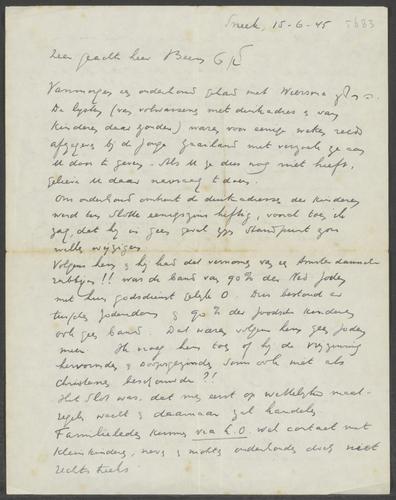 Sneek, 15-6-45 5683
Zeer geacht heer Beens
Vanmorgen een onderhoud gehad met Wiersma
De lijsten (van volwassenen met duikadres & van
kinderen daar zonder) waren voor eenige weken reeds
afgegeven bij de jonge Gaasland met verzoek ze aan
U door te geven. Als U ze dus nog niet heeft,
gelieve U daar navraag te doen.
Om onderhoud omtrent de duikadressen der kinderen
werd ten slotte eenigszins heftig, vooral toen ik
zag, dat hij in geen geval zijn standpunt zou
willen wijzigen.
Volgens hem & hij had dat vernomen van een Amsterdamschen
rabbijn!! was de band van 90% der Ned Joden
met hun godsdienst gelijk 0. Dus bestond er
tusschen Jodendom & 90% der Joodsche kinderen
ook geen band. Dat waren volgens hem geen Joden
meer. Ik vroeg hem toen of hij de vrijzinnig
hervormden & doopsgezinden soms ook niet als
christenen beschouwde?!
Het slot was, dat hij eerst op wettelijke maat-
regels wacht & daarnaar zal handelen.
Familieleden kunnen via L.O wel contact met
kleinkinderen, neven & nichten onderhouden doch niet
rechtstreeks.